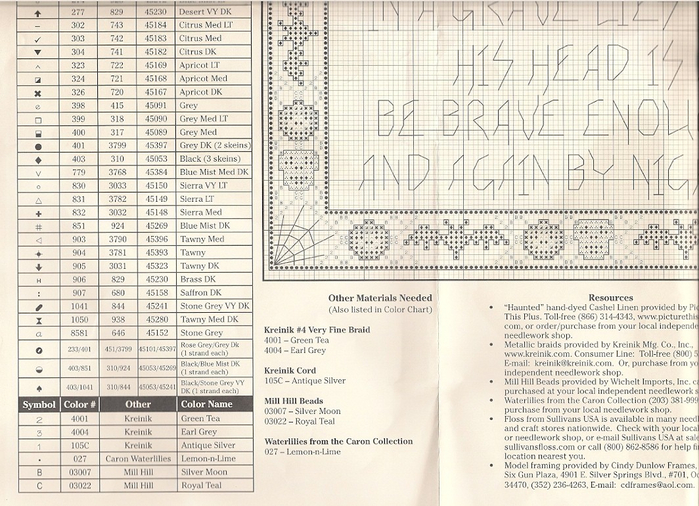 277 829 45230 Desert VY DK
302 743 45184 Citrus Med LT
303 742 45183 Citrus Med
304 741 45182 Citrus DK
323 722 45169 Apricot LT
324 721 45168 Apricot Med
326 720 45167 Apricot DK
398 415 45091 Grey
399 318 45090 Grey Med LT
400 317 45089 Grey Med
401 3799 45397 Grey DK (2 skeins)
403 310 45053 Black (3 skeins)
779 3768 45384 Blue Mist Med DK
830 3033 45150 Sierra VY LT
831 3782 45149 Sierra LT
832 3032 45148 Sierra Med
# 851 924 45269 Blue Mist DK
903 3790 45396 Tawny Med
904 3781 45393 Tawny
905 3031 45323 Tawny DK
H 906 829 45230 Brass DK
: 907 680 45158 Saffron DK
1041 844 45241 Stone Grey VY DK
1050 938 45280 Tawny Med DK
a 8581 646 45152 Stone Grey
233/401 451/3799 45101/45397 Rose Grey/Grey Dk
(1 strand each)
403/851 310/924 45053/45269 Black/Blue Mist DK
(1 strand each)
403/1041 310/844 45053/45241 Black/Stone Grey VY
DK (1 strand each)
Symbol Color # Other Color Name
2 4001 Kreinik Green Tea
3 4004 Kreinik Earl Grey
1 105C Kreinik Antique Silver
• 027 Caron Waterlilies Lemon-n-Lime
B 03007 Mill Hill Silver Moon
C 03022 Mill Hill Royal Teal
IN A GRAVE
HIS HEAD IS
BE BRAVE ENOU
AND AGAIN BY NIG
Other Materials Needed
(Also listed in Color Chart)
Kreinik #4 Very Fine Braid
4001 – Green Tea
4004 – Earl Grey
Kreinik Cord
105C – Antique Silver
Mill Hill Beads
03007 – Silver Moon
03022 – Royal Teal
Waterlilies from the Caron Collection
027 – Lemon-n-Lime
Resources
• "Haunted" hand-dyed Cashel Linen provided by Pic
This Plus. Toll-free (866) 314-4343, www.picturethis
com, or order/purchase from your local independe
needlework shop.
• Metallic braids provided by Kreinik Mfg. Co., Inc.,
www.kreinik.com. Consumer Line: Toll-free (800) 5
E-mail: kreinik@kreinik.com. Or, purchase from yo
independent needlework shop.
• Mill Hill Beads provided by Wichelt Imports, Inc. c
purchased at your local independent needlework s
• Waterlilies from the Caron Collection (203) 381-999
purchase from your local needlework shop.
• Floss from Sullivans USA is available in many need
and craft stores nationwide. Check with your local
or needlework shop, or e-mail Sullivans USA at sale
sullivansfloss.com or call (800) 862-8586 for help fi
location nearest you.
• Model framing provided by Cindy Dunlow Frames,
Six Gun Plaza, 4901 E. Silver Springs Blvd., #701, Oc
34470, (352) 236-4263, E-mail: cdframes@aol.com.